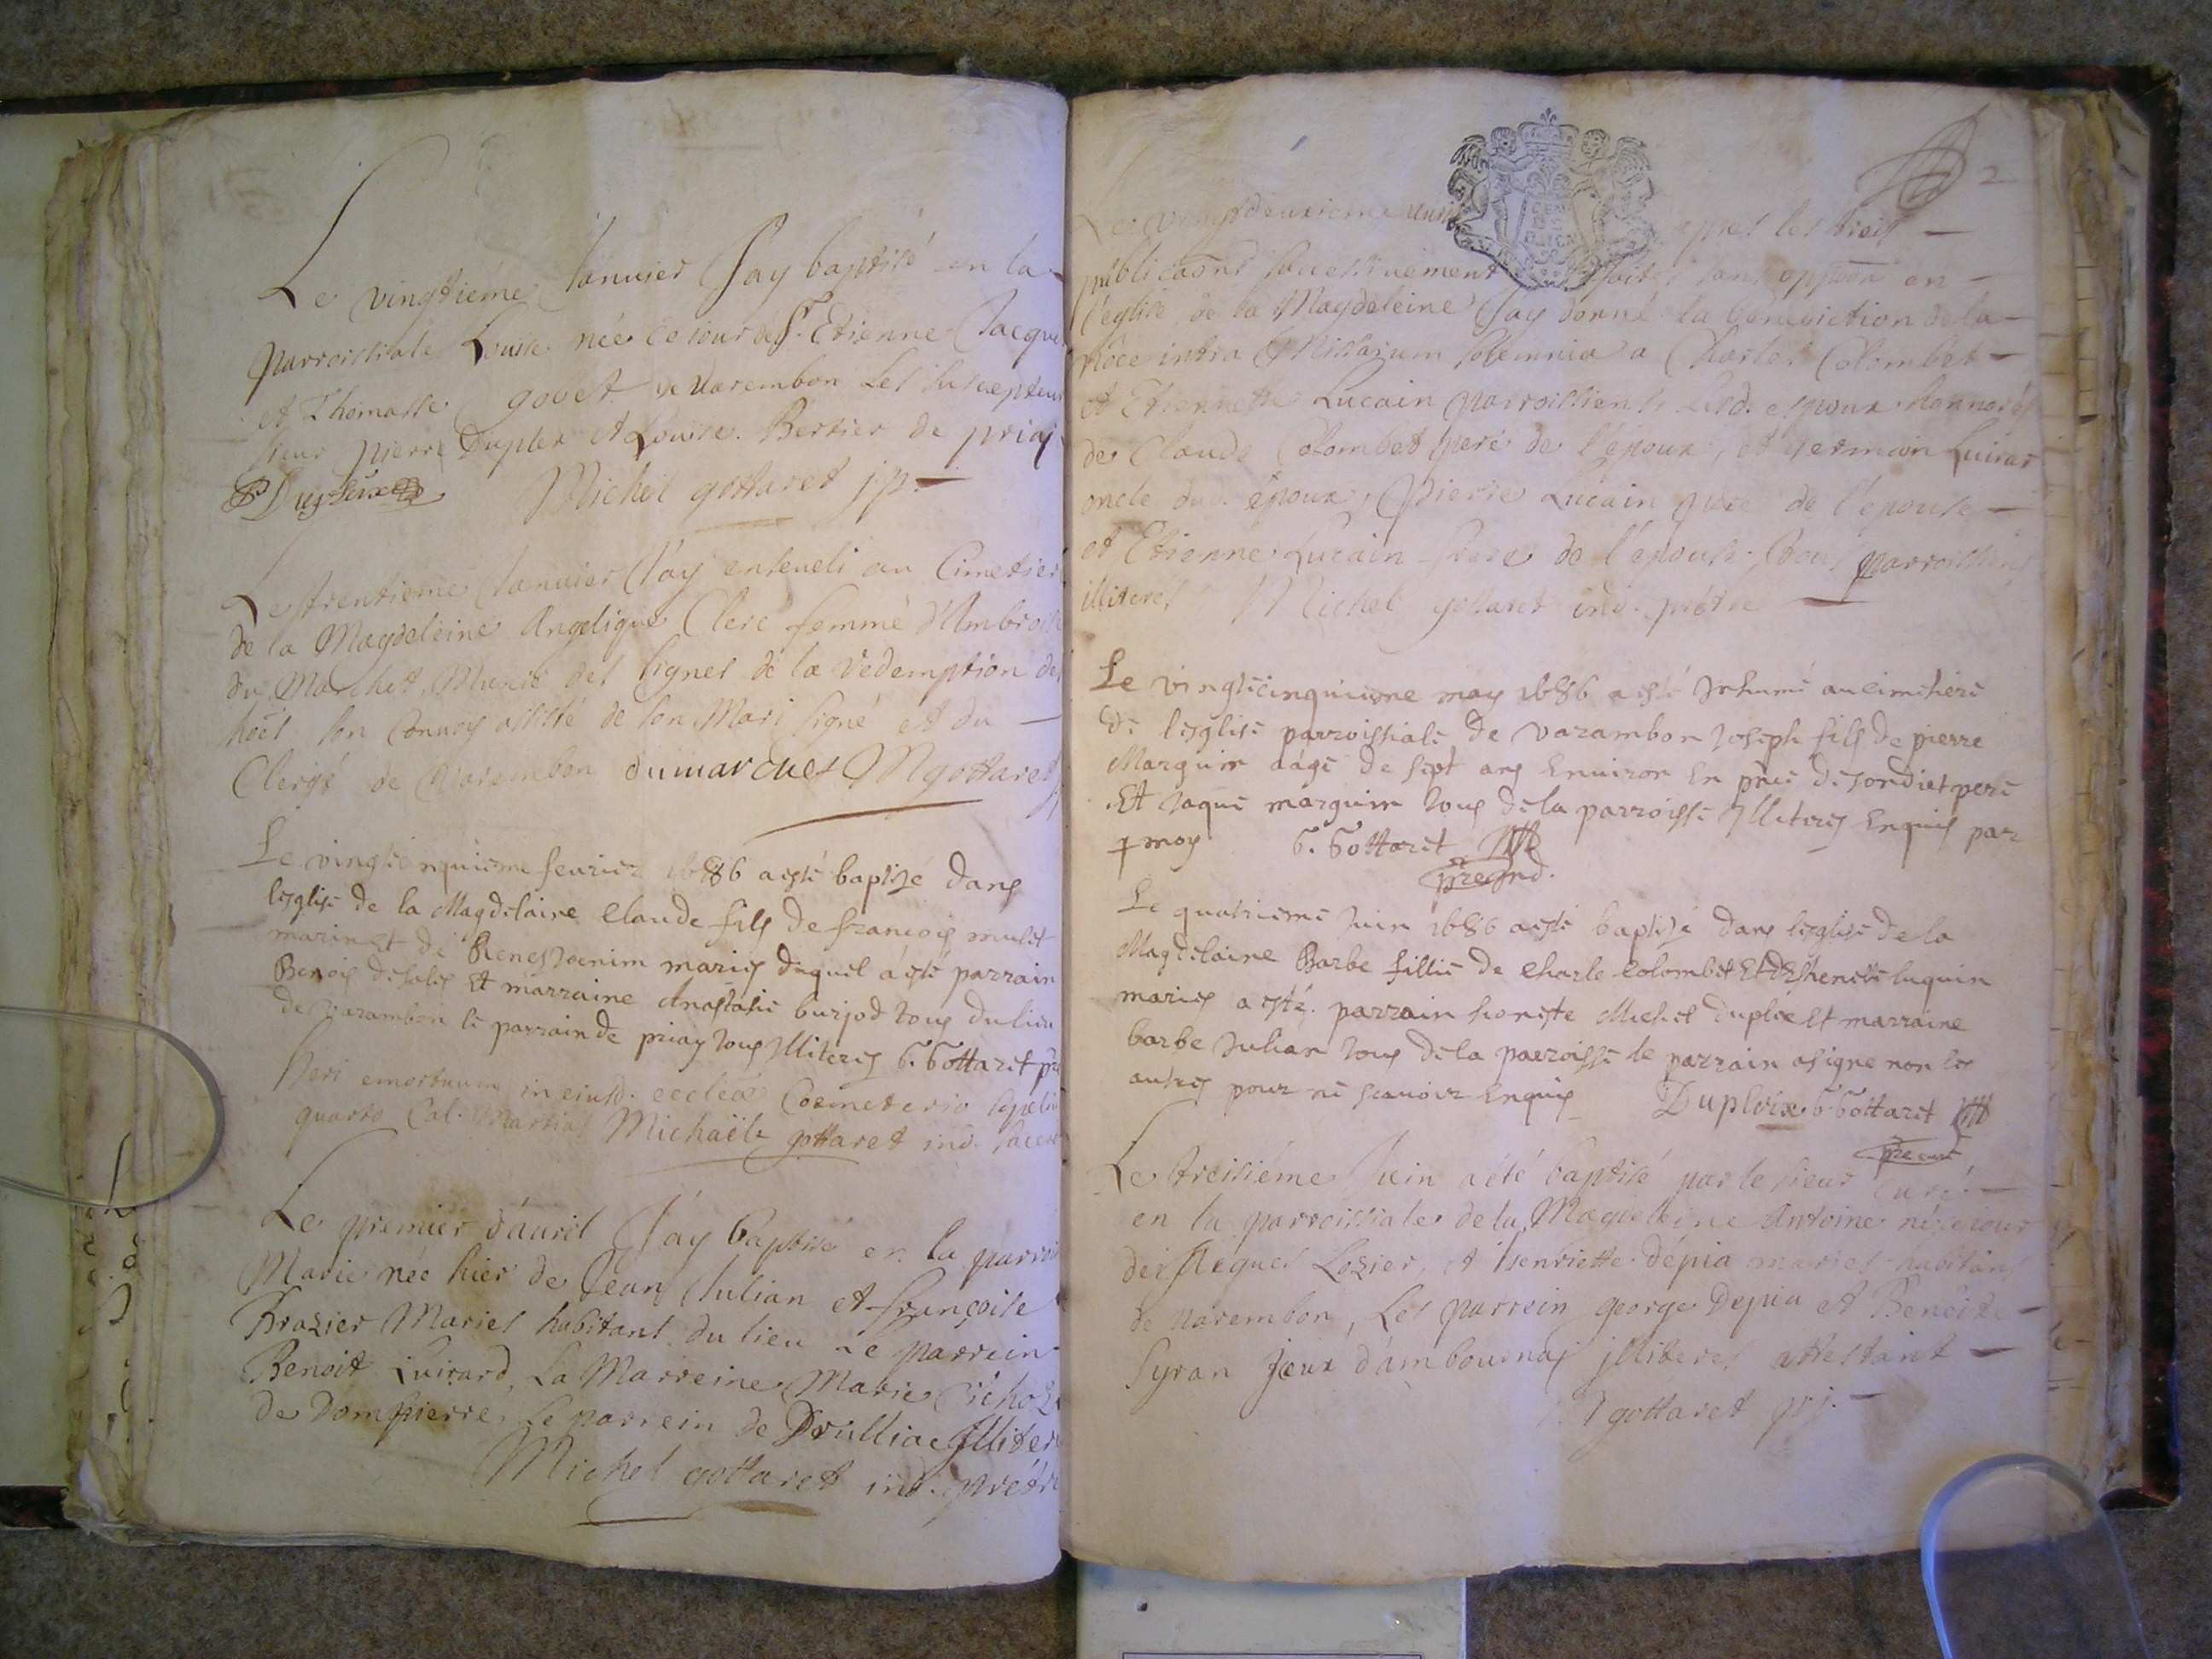 Le vingtiéme Ianuier Jay baptisé en la
parroissiale Louise née ce iour de Sr. Etienne Jacque
et Thomasse gobet de Varembon Les suscepteur
sieur pierre Dupler et Louise Bersier de priaj
Michel gottaret j.p.
Le trentieme Ianuier J'ay enseueli au Cimetier
de la Magdeleine Angelique Clerc femme d'Ambroise
du Marchet, Munie des signes de la Redemption de
son Conuoy assisté de son Mari signé et du
Clergé de Varembon dumarchet M gottaret
Le vingt cinquiesme feurier 1686 a esté baptizé dans
lesglise de la Magdelaine Claude fils de francois mulet
marin et de Rene Joenim mariés duquel a esté parrain
Benois desales et marraine Anastasie burjod tous du lieu
de varambon le parrain de priay tous Illiteres G. Gottaret ptre
Heri emortuum in eiusd. eccleae Coemeterio sepeliu
quarto Cal. Martias Michaël gottaret ind. sacer
Le premier d'auril J'ay baptisé en la parroi
Marie née hier de Jean Iulian et françoise
Brazier Mariés habitans du lieu Le parrein
Benoit Luirard, La Marreine Marie
de Dompierre, Le parrein de Druillia Illitere
Michel gottaret ind. prétre
2
Le vingtdeuxieme apres les trois
publicaons successiuement faites sans oppoon en
l'eglise de la Magdeleine Jay donné la benediction de la
noce intra Missarum solemnia a Charles Colombet
et Etiennette Lucain parroissiens Lesd. espoux honnorés
de Claude Colombet pere de l'epoux, et germain Luirar
oncle dud. époux, Pierre Lucain pere de l'epouse
et Etienne Lucain frere de l'epouse. Tous parroissiens
illiteres Michel gottaret ind. prétre
Le vingtcinquiesme may 1686 a esté Inhumé au cimetiere
de lesglise parroissiale de varambon Joseph fils de pierre
Marguin aagé de sept ans Enuiron En pnce de sondict pere
Et Jaque marguin tous de la parroisse Illiteres Enquis par
moy G. Gottaret
Le quatriesme Juin 1686 a esté baptizé dans lesglise de la
Magdelaine Barbe fillie de Charle Colombet Et d'Estienette luquin
mariés a esté parrain honeste Michel duplex Et marraine
barbe Julian tous de la parroisse le parrain a signe non les
autres pour ne scauoir Enquis Duploix G. Gottaret
Le treisiéme Juin a été baptisé par le sieur curé
en la parroissiale de la Magdeleine Antoine né ce iour
de Jaques Lozier, et Henriette dépia mariés habitans
de Varembon, Les parrein george Depia et Benoite
Syran Jeux d'ambournaj jlliteres attestant
M gottaret prj.